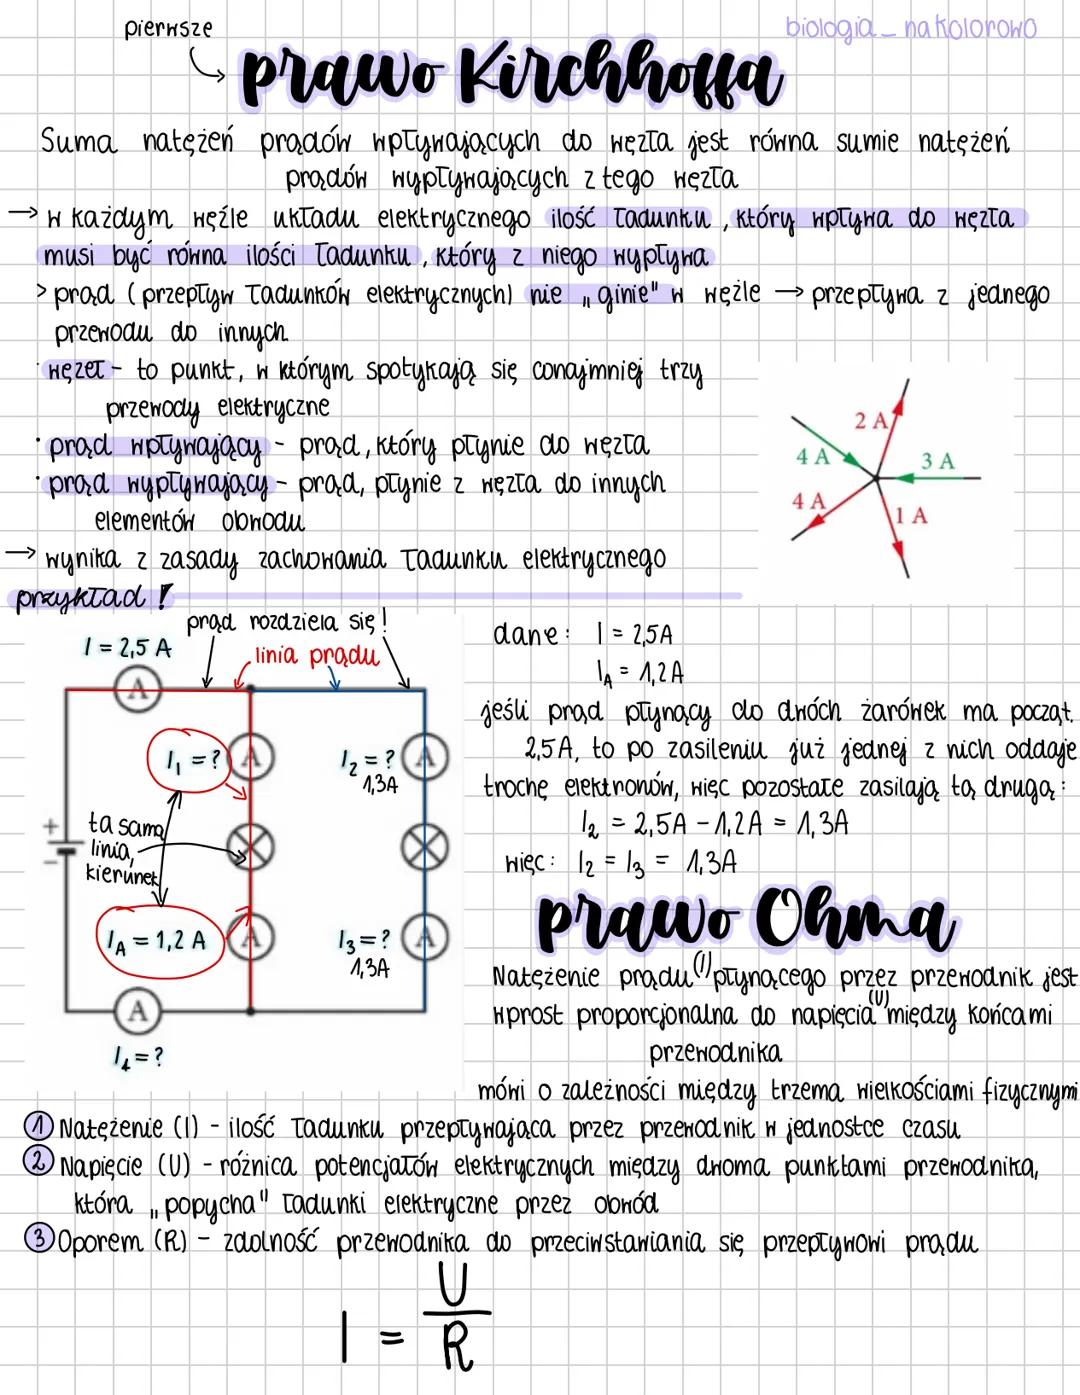 pierwsze
biologia_nakolorowo
prawo Kirchhoffa
Suma natężeń prądów wpływających do węzła jest równa sumie natężeń
prądów wypływających z tego węzła
→ w każdym węźle układu elektrycznego ilość ładunku, który wpływa do węzła
musi być równa ilości ładunku, który z niego wypływa
> prąd (przepływ ładunków elektrycznych) nie „ginie" w węźle → przepływa z jednego
przewodu do innych
· węzeł - to punkt, w którym spotykają się conajmniej trzy
przewody elektryczne
· prąd wpływający - prąd, który płynie do węzła
· prąd wypływający - prąd, płynie z węzła do innych
elementów obwodu
→ wynika z zasady zachowania ładunku elektrycznego
2 A
4 A
3 A
4 A
1 A
przykład!
prąd rozdziela się!
I = 2,5 A
linia prądu
A
I₁ = ?
A
I₂ = ?
A
1,3A
+
-
ta sama
linia,
kierunek
I_A = 1,2 A
A
I₃ = ?
A
1,3A
A
I₄ = ?
dane: I = 2,5A
I_A = 1,2A
jeśli prąd płynący do dwóch żarówek ma począt.
2,5A, to po zasileniu już jednej z nich oddaje
trochę elektronów, więc pozostałe zasilają tą drugą:
I₂ = 2,5A - 1,2A = 1,3A
więc: I₂ = I₃ = 1,3A
prawo Ohma
Natężenie prądu (I) płynącego przez przewodnik jest
wprost proporcjonalna do napięcia (U) między końcami
przewodnika
mówi o zależności między trzema wielkościami fizycznymi
1 Natężenie (I) - ilość ładunku przepływająca przez przewodnik w jednostce czasu
2 Napięcie (U) - różnica potencjałów elektrycznych między dwoma punktami przewodnika,
która „popycha" ładunki elektryczne przez obwód
3 Oporem (R) - zdolność przewodnika do przeciwstawiania się przepływowi prądu
I = U/R